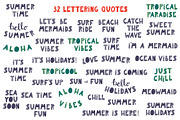 SUMMER TIME
32 LETTERING QUOTES
TROPICAL PARADISE
hello SUMMER
LET'S BE MERMAIDS
SURF RIDE
BEACH FUN
CATCH THE WAVE
SWEET SUMMER
ALOHA
SUMMER VIBES
TROPICAL VIBES
SURF TIME
I'M A MERMAID
IT'S HOLIDAYS!
LOVE SUMMER
SUMMER IS HERE!
OCEAN WAVES
SUMMER TIME
TROPICOOL
SUMMER IS COMING
JUST CHILL
SEA YOU SOON
SURF'S UP
SUN - FUN
hello SUMMER
MEOWMAID
SEA TIME
ALOHA VIBES
HOLIDAYS
CHILL
SUMMER IS HERE!
SWEET SUMMER
SUMMER FUN